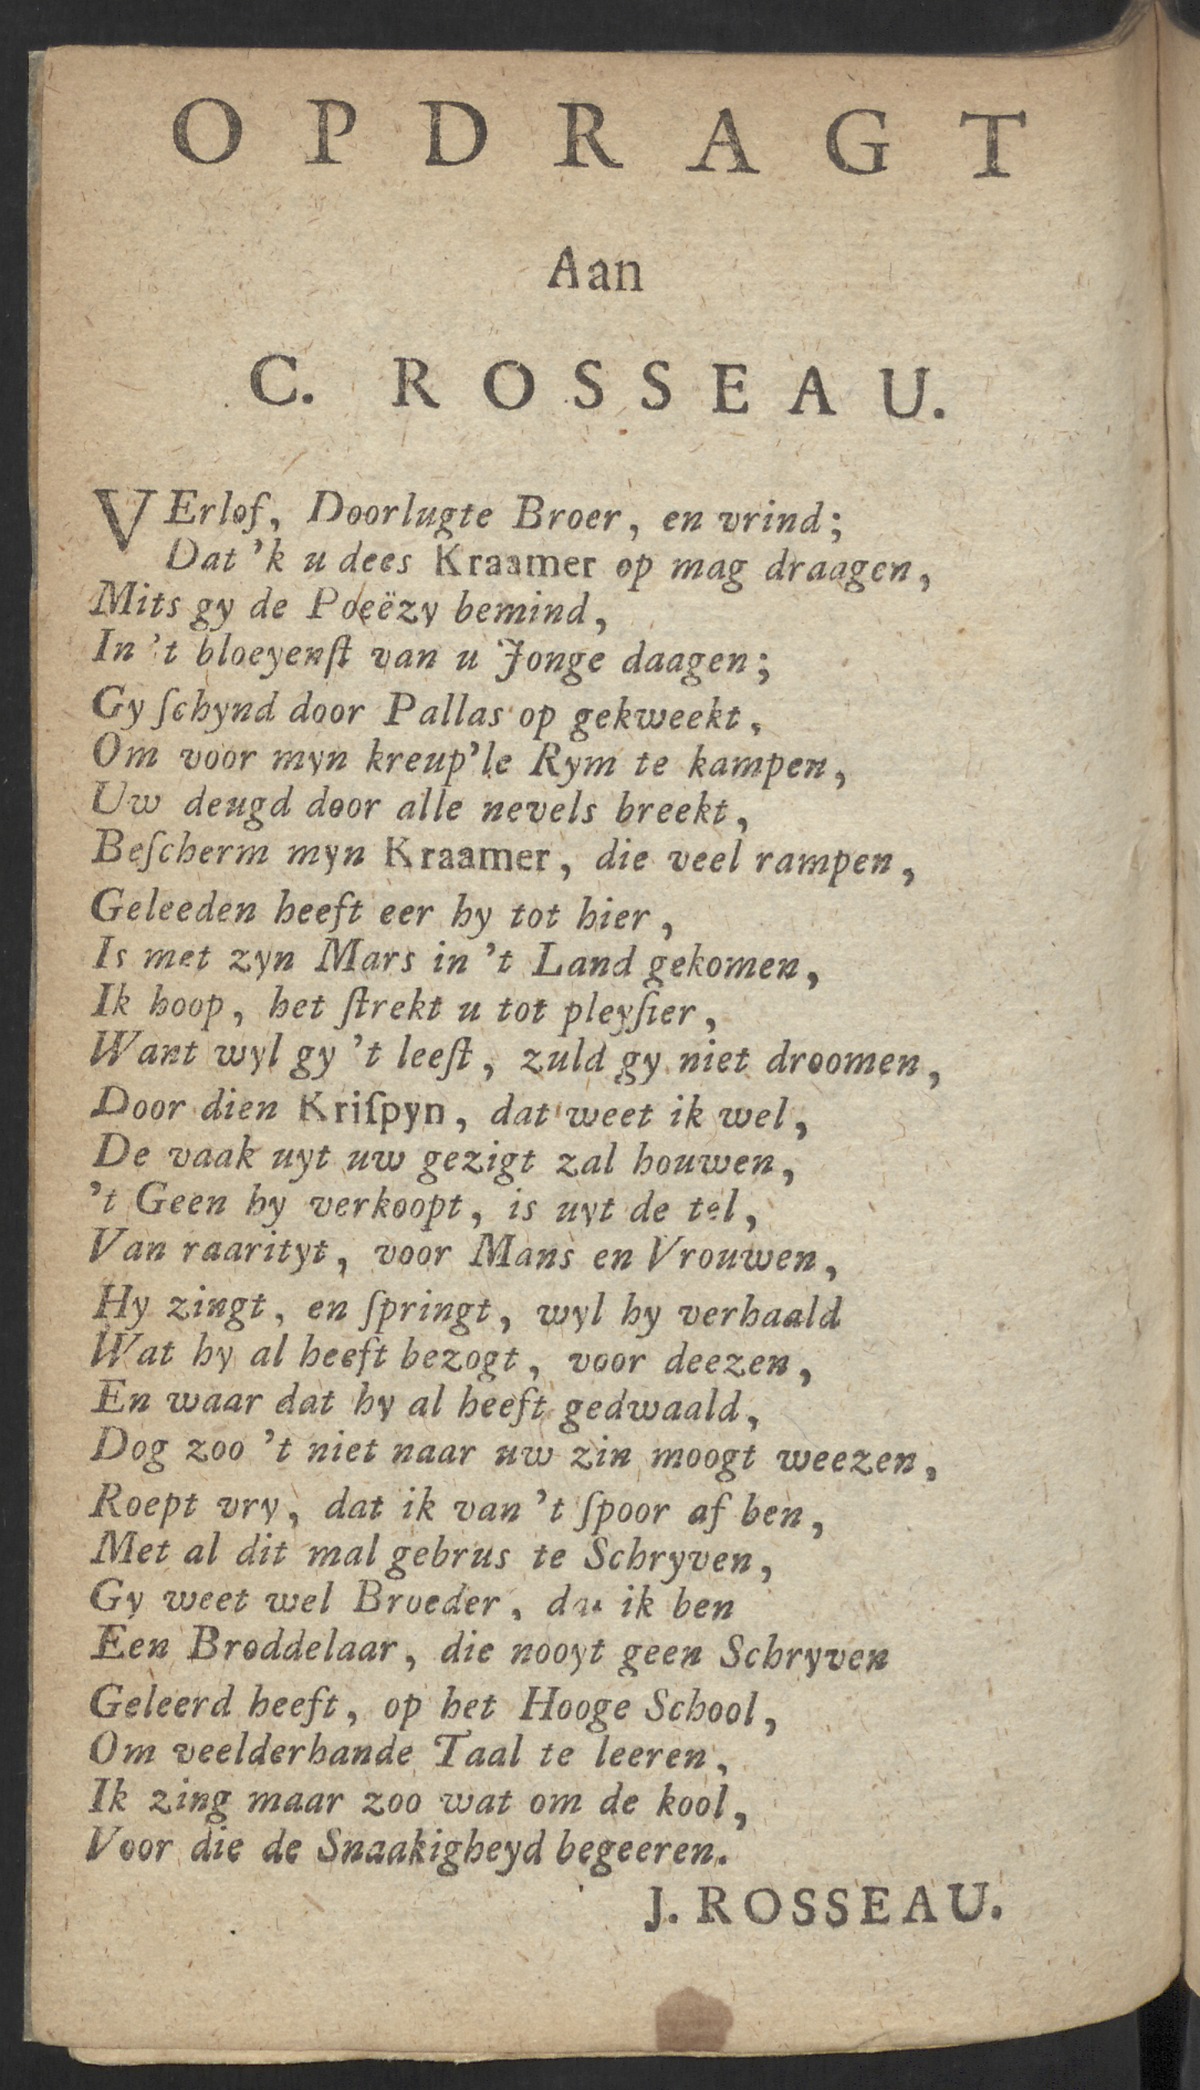 OPDRAGT
Aan
C. ROSSEAU.
VErlof, Doorlugte Broer, en vrind;
Dat 'k u dees Kraamer op mag draagen,
Mits gy de Poeëzy bemind,
In 't bloeyenſt van u Jonge daagen;
Gy ſchynd door Pallas op gekweekt,
Om voor myn kreup'le Rym te kampen,
Uw deugd door alle nevels breekt,
Beſcherm myn Kraamer, die veel rampen,
Geleeden heeft eer hy tot hier,
Is met zyn Mars in 't Land gekomen,
Ik hoop, het ſtrekt u tot pleyſier,
Want wyl gy 't leeſt, zuld gy niet droomen,
Door dien Kriſpyn, dat weet ik wel,
De vaak uyt uw gezigt zal houwen,
't Geen hy verkoopt, is uyt de tel,
Van raarityt, voor Mans en Vrouwen,
Hy zingt, en ſpringt, wyl hy verhaald
Wat hy al heeft bezogt, voor deezen,
En waar dat hy al heeft gedwaald,
Dog zoo 't niet naar uw zin moogt weezen,
Roept vry, dat ik van 't ſpoor af ben,
Met al dit mal gebrus te Schryven,
Gy weet wel Broeder, dat ik ben
Een Broddelaar, die nooyt geen Schryven
Geleerd heeft, op het Hooge School,
Om veelderhande Taal te leeren,
Ik zing maar zoo wat om de kool,
Voor die de Snaakigheyd begeeren.
J. ROSSEAU.